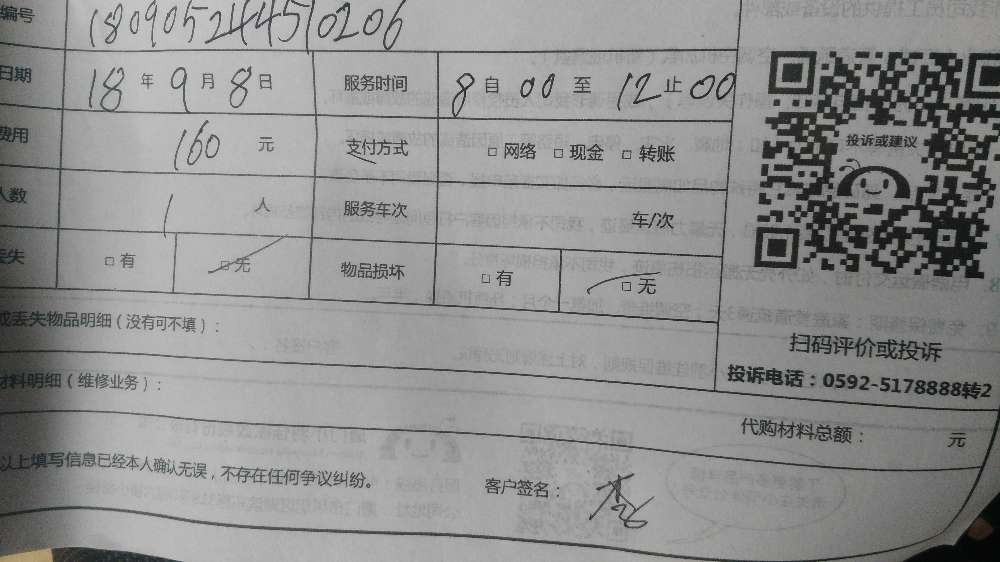 编号 180905244510206
日期 18年9月8日 服务时间 8自00至12止00
费用 160元 支付方式 □网络 □现金 □转账
人数 1人 服务车次 车/次
丢失 □有 □无 物品损坏 □有 □无
投诉或建议
或丢失物品明细(没有可不填):
扫码评价或投诉
投诉电话:0592-5178888转2
材料明细(维修业务):
代购材料总额: 元
以上填写信息已经本人确认无误,不存在任何争议纠纷。
客户签名: